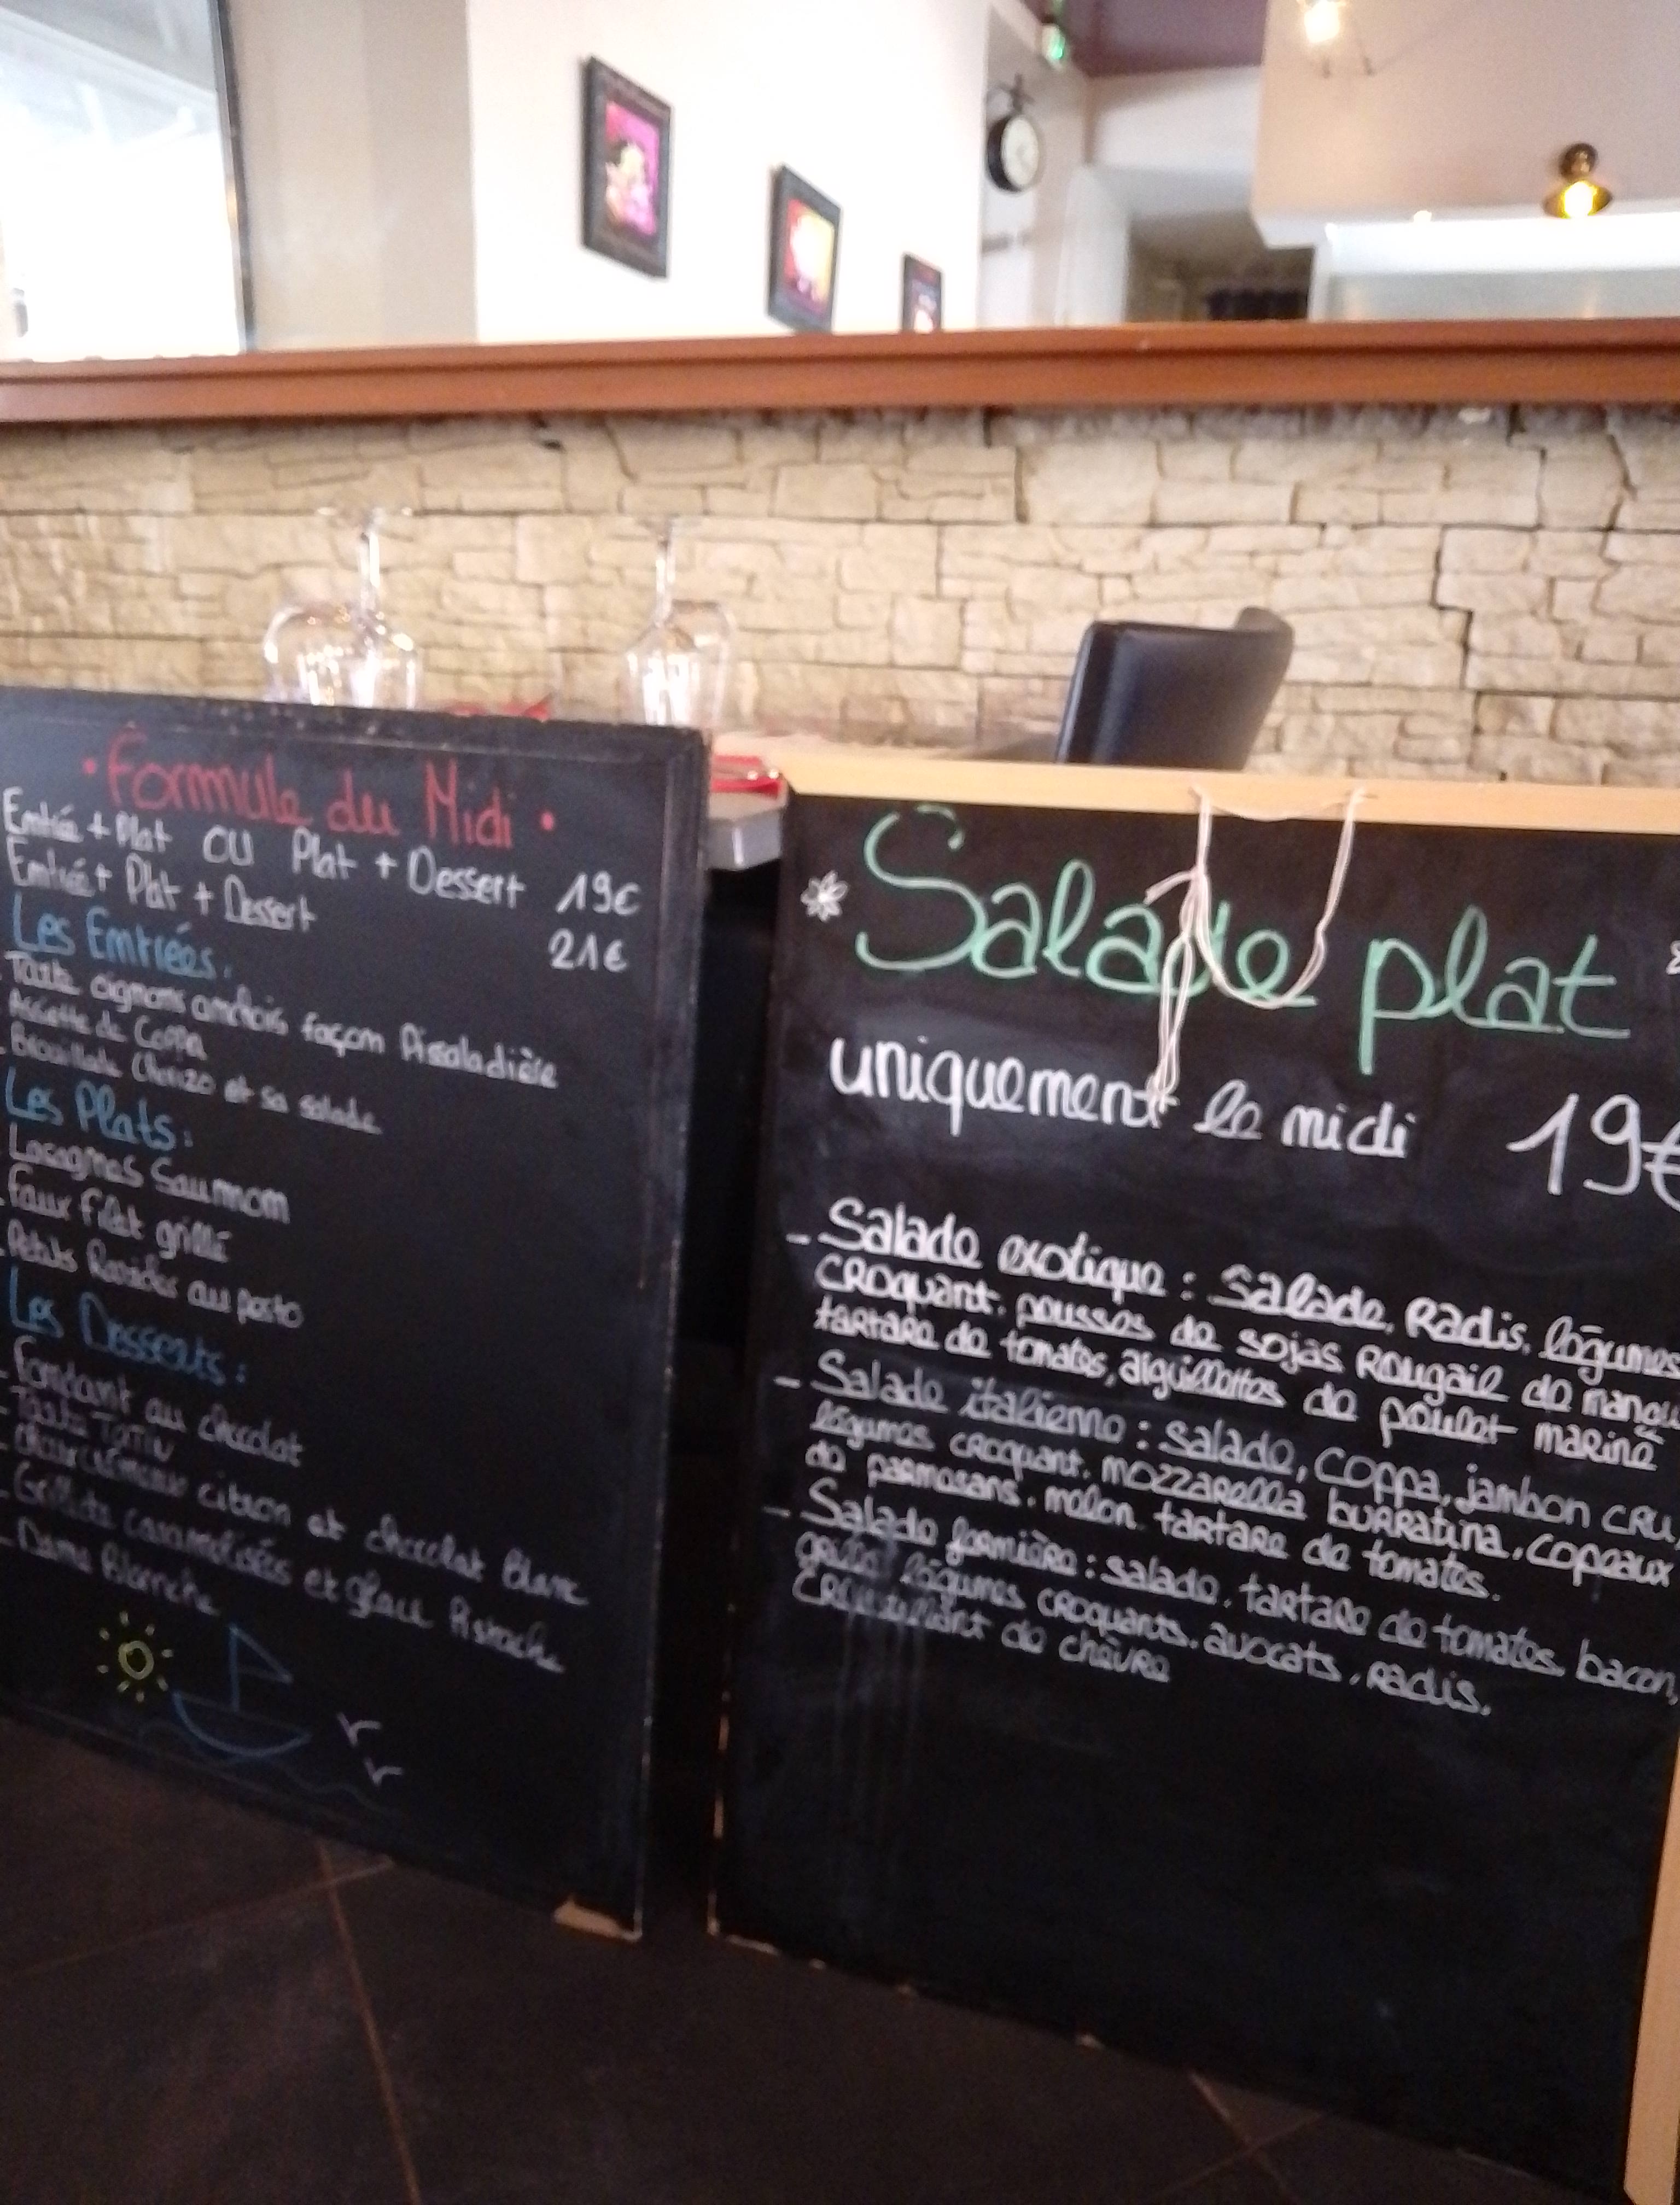 • Formule du Midi •
Entrée + Plat OU Plat + Dessert 19€
Entrée + Plat + Dessert 21€
Les Entrées:
Tarte oignons anchois façon Pissaladière
Assiette de Coppa
Brouillade Chorizo et sa salade
Les Plats:
Lasagnes Saumon
Faux filet grillé
Petits au pesto
Les Desserts:
- Fondant au chocolat
- Tarte Tatin
- citron et chocolat Blanc
- caramélisées et glace Pistache
- Dame Blanche
Salade plat
uniquement le midi 19€
- Salade exotique : Salade, Radis, légumes
croquant, pousses de sojas Rougail de mangu
tartare de tomates, aiguillettes de poulet mariné
- Salade italienne : salade, coppa, jambon cru,
légumes croquant, mozzarella burratina, copeaux
de parmesans, melon, tartare de tomates.
- Salade fermière : salade, tartare de tomates, bacon,
grillé légumes croquants, avocats, radis,
croustillant de chèvre